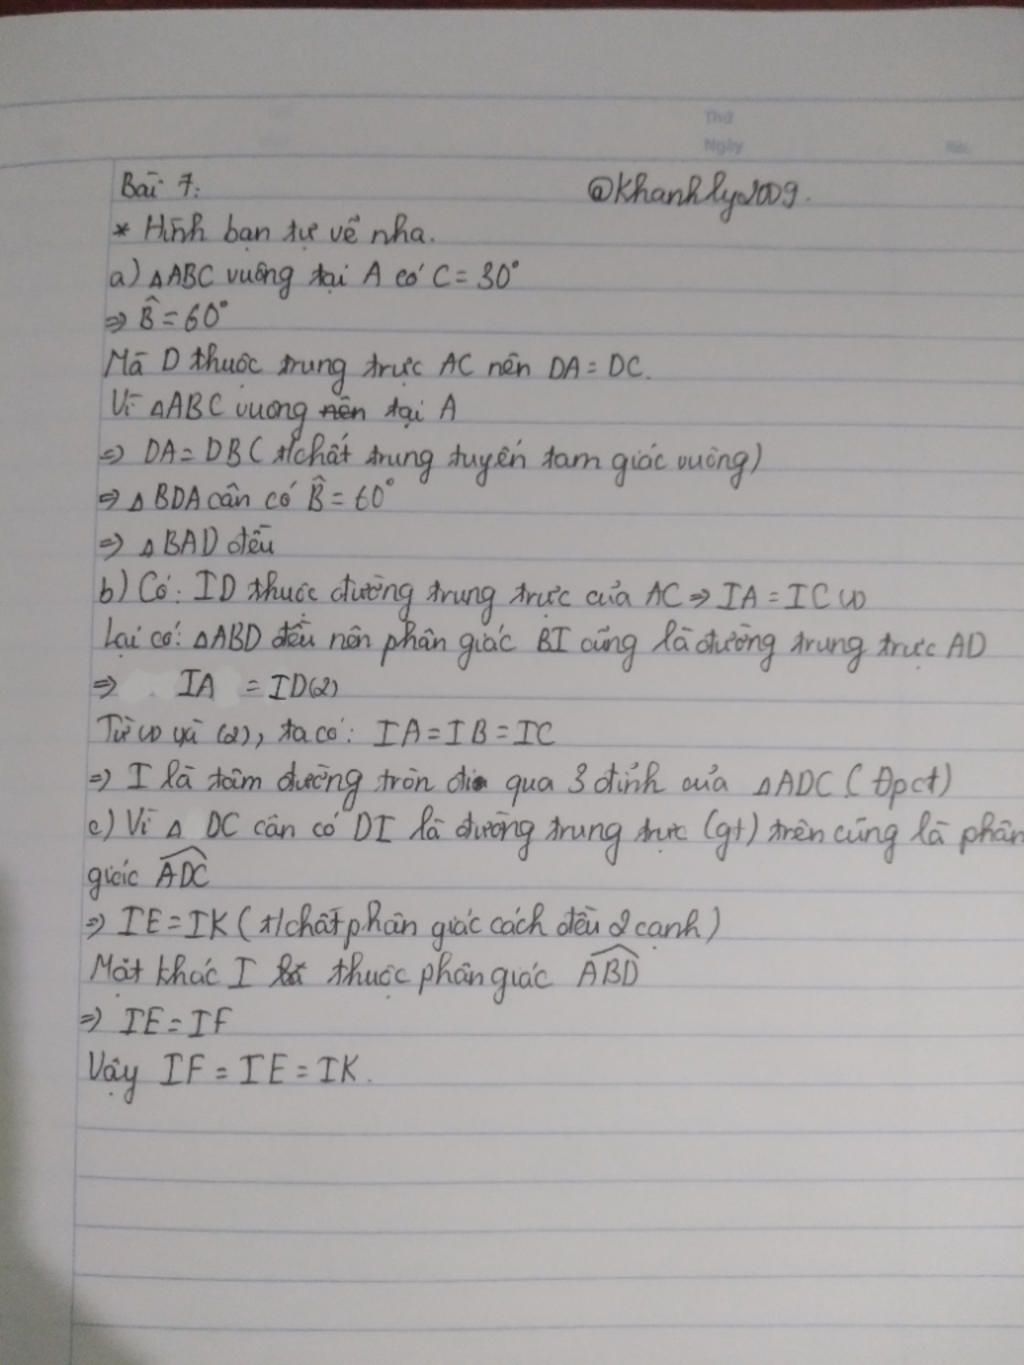 Thứ
Ngày
Bài 7: @Khanhly2009.
* Hình bạn tự vẽ nha.
a) △ABC vuông tại A có C = 30°
⇒ B̂ = 60°
Mà D thuộc trung trực AC nên DA = DC.
Vì △ABC vuông nên tại A
⇒ DA = DB ( t/chất trung tuyến tam giác vuông)
⇒ △BDA cân có B̂ = 60°
⇒ △BAD đều
b) Có: ID thuộc đường trung trực của AC ⇒ IA = IC (1)
Lại có: △ABD đều nên phân giác BI cũng là đường trung trực AD
⇒ IA = ID (2)
Từ (1) và (2), ta có: IA = IB = IC
⇒ I là tâm đường tròn đi qua 3 đỉnh của △ADC ( Đpct)
c) Vì △ DC cân có DI là đường trung trực (gt) trên cũng là phân
giác ADC
⇒ IE = IK ( t/chất phân giác cách đều 2 cạnh)
Mặt khác I thuộc phân giác ABD
⇒ IE = IF
Vậy IF = IE = IK.